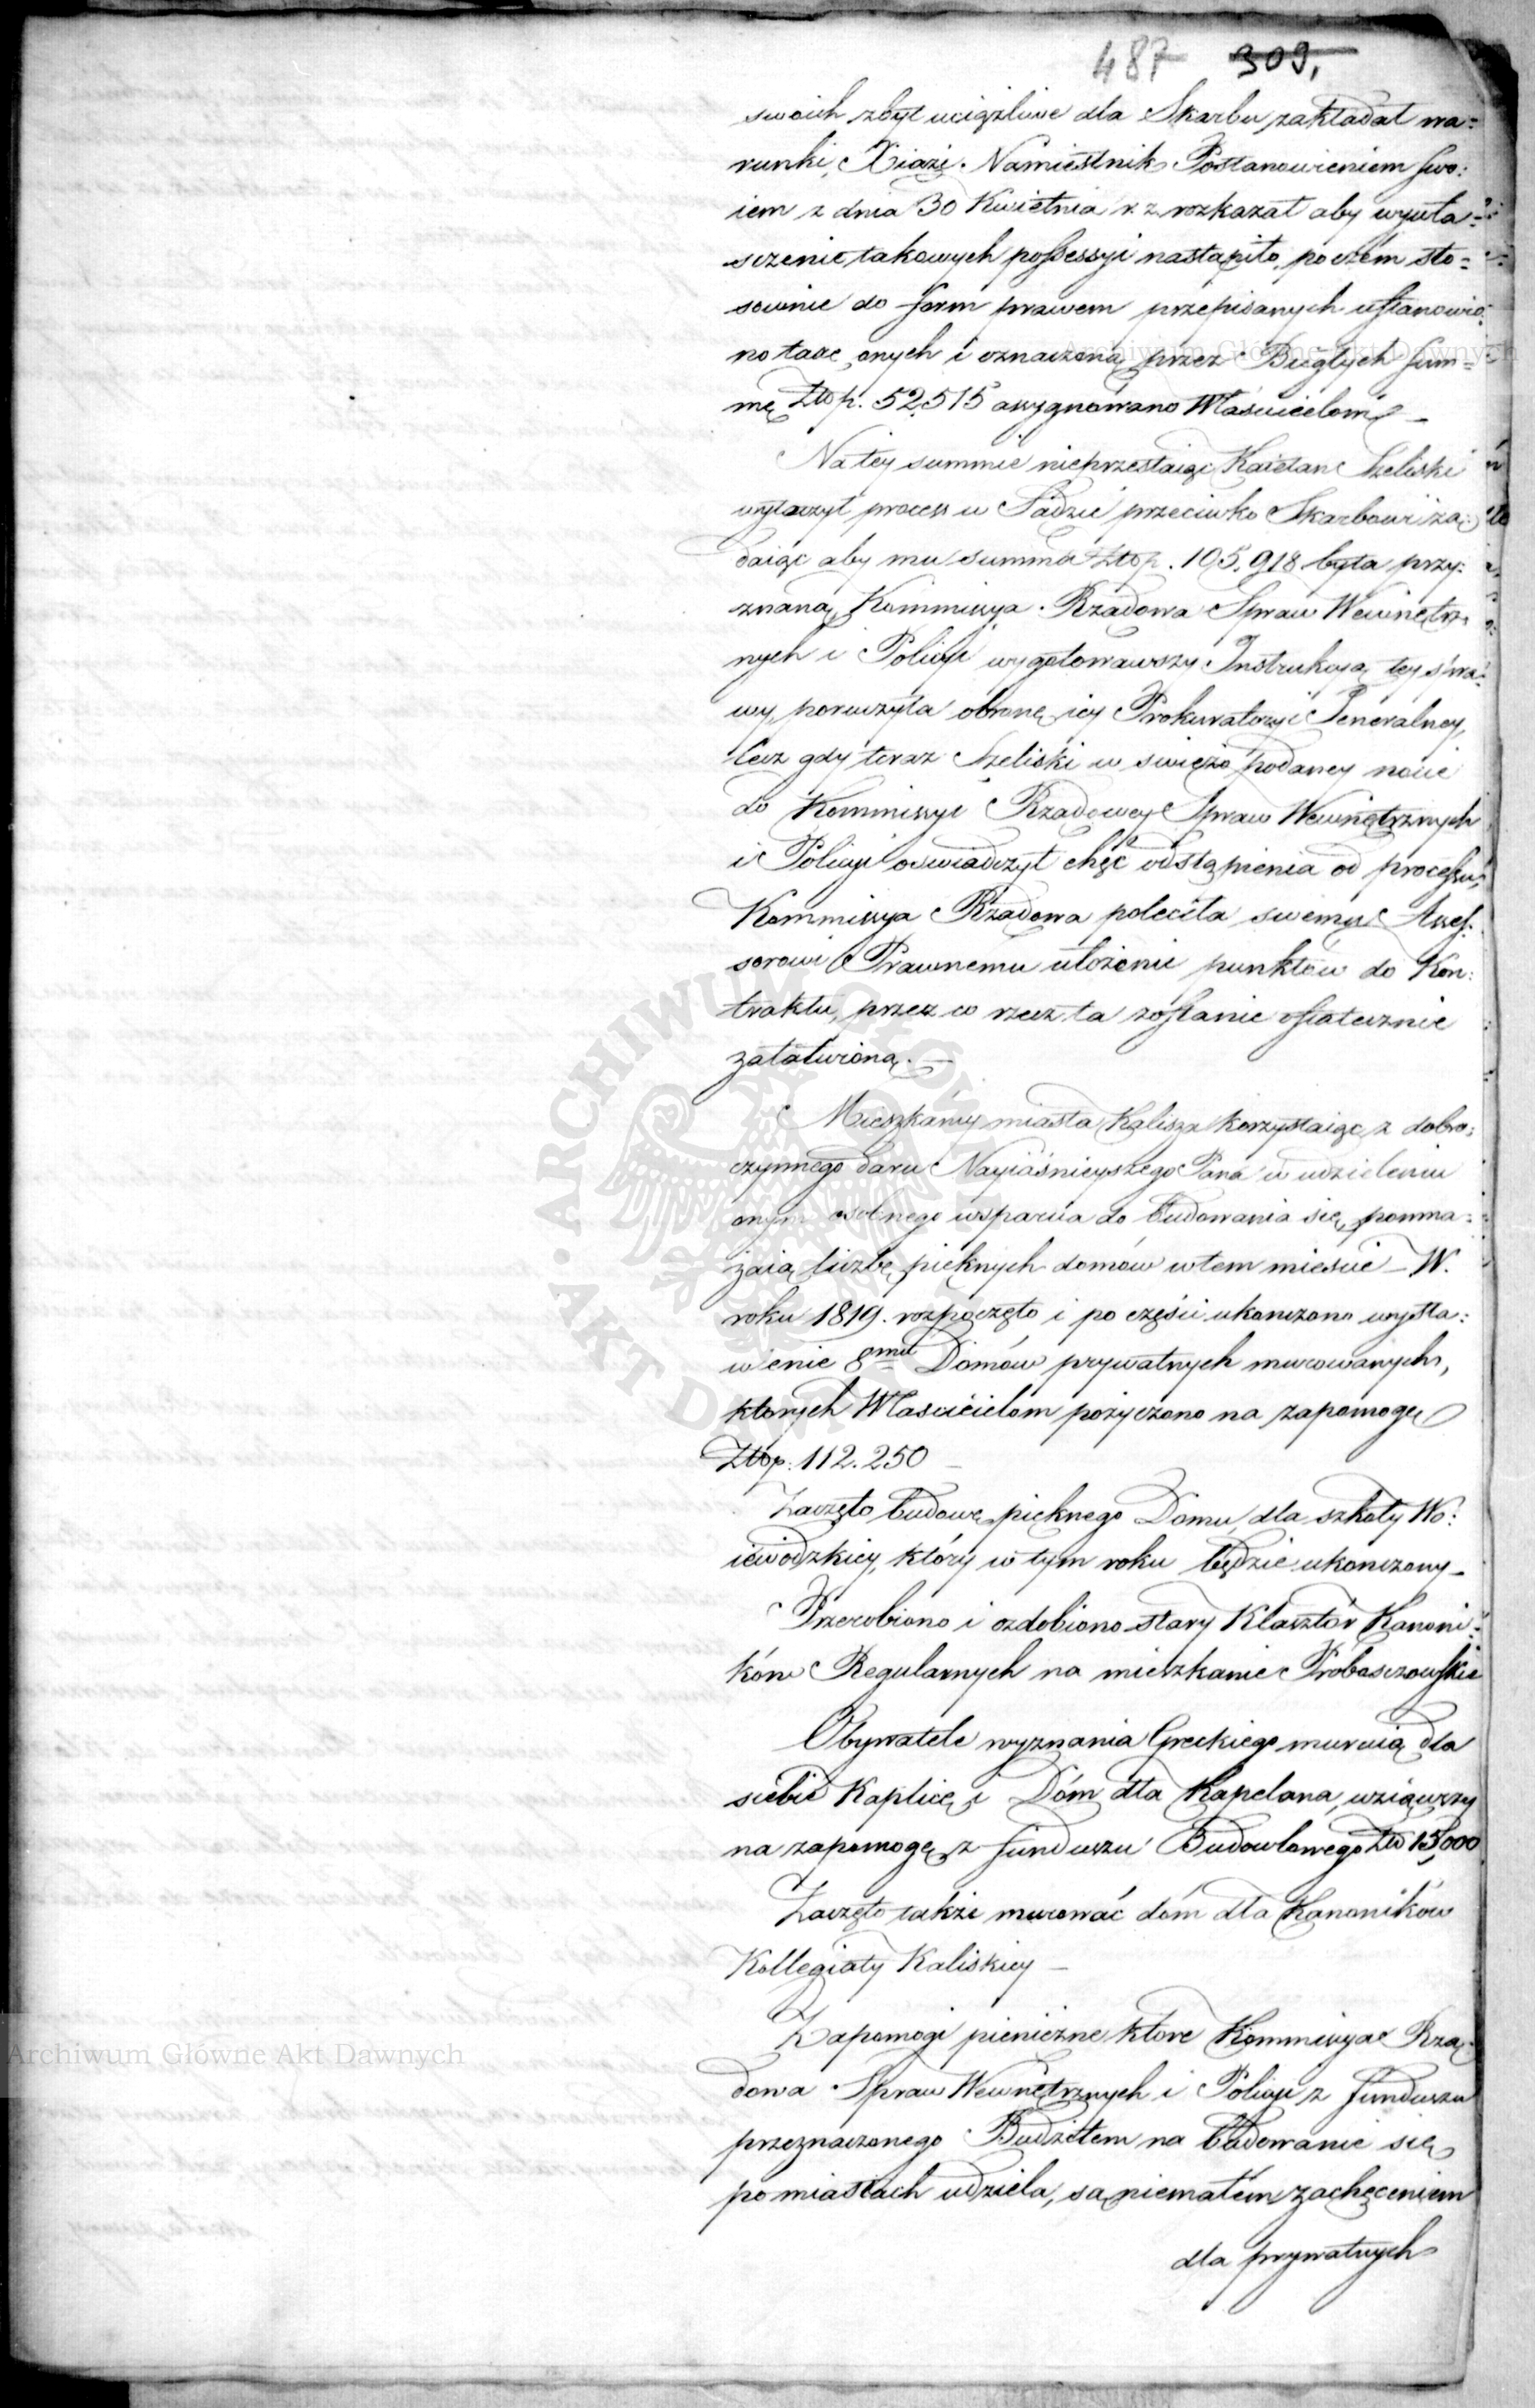 487 309,
swoich zbyt uciążliwe dla Skarbu zakładał wa:
runki, Xiąże Namiestnik Postanowieniem swo:
iem z dnia 30 Kwietnia r. z. rozkazał aby wywła=
szczenie takowych possessyi nastąpiło, poczém sto=
sownie do form prawem przepisanych ustanowio:
no taxę onych i oznaczoną przez Biegłych sum=
mę Złłp. 52,515 assygnowano Właścicielom –
Na tey summie nieprzestaiąc Kaietan Szeliski
wytoczył process w Sądzie przeciwko Skarbowi żą:
daiąc aby mu summa Złłp. 105,918 była przy:
znaną, Kommissya Rządowa Spraw Wewnętrz:
nych i Policyi wygotowawszy Instrukcyą tey spra:
wy, poruczyła obronę iey Prokuratoryi Jeneralney,
lecz gdy teraz Szeliski w swieżo podaney nocie
do Kommissyi Rządowey Spraw Wewnętrznych
i Policyi oswiadczył chęć odstąpienia od processu,
Kommissya Rządowa poleciła swemu Asses:
sorowi Prawnemu ułożenie punktów do Kon:
traktu, przez co rzecz ta zostanie ostatecznie
załatwioną. –
Mieszkańcy miasta Kalisza korzystaiąc z dobro:
czynnego daru Nayiaśnieyszego Pana w udzieleniu
onym osobnego wsparcia do budowania się, pomna:
żaią liczbę pięknych domów w tem mieście – W.
roku 1819. rozpoczęto i po części ukończono wysta:
wienie 8miu Domów prywatnych murowanych,
których Właścicielom pożyczono na zapomogę
Złłp. 112.250 –
Zaczęto budowę pięknego Domu, dla szkoły Wo:
iewódzkiey, który w tym roku będzie ukonczony –
Przerobiono i ozdobiono stary Klasztór Kanoni:
ków Regularnych na mieszkanie Proboszczowskie
Obywatele wyznania Greckiego muruią dla
siebie Kaplicę i Dóm dla Kapelana, wziąwszy
na zapomogę z funduszu Budowlanego Złł 15,000
Zaczęto także murować dóm dla Kanoników
Kollegiaty Kaliskiey –
Zapomogi pieniężne które Kommissya Rzą:
dowa Spraw Wewnętrznych i Policyi z funduszu
przeznaczonego Budżetem na budowanie się
po miastach udziela, są niemałém zachęceniem
dla prywatnych
Archiwum Główne Akt Dawnych